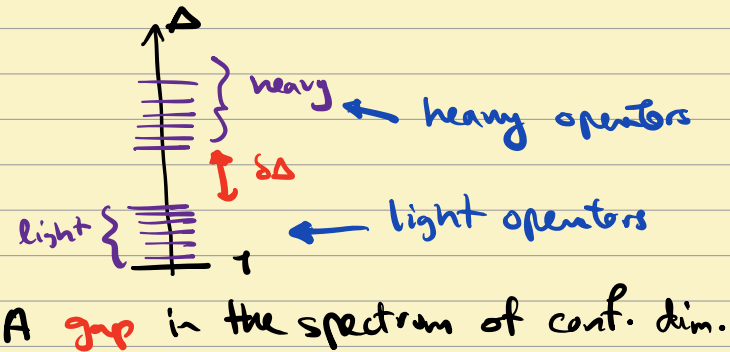 Δ
heavy
heavy operators
δΔ
light
light operators
1
A gap in the spectrum of conf. dim.